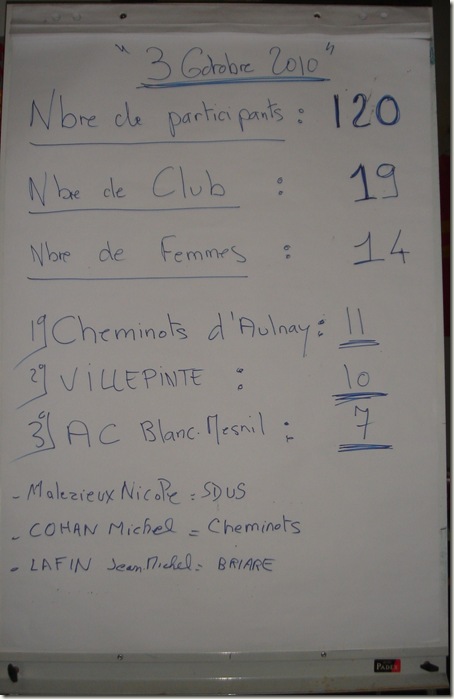 "3 Octobre 2010"
Nbre de participants : 120
Nbre de Club : 19
Nbre de Femmes : 14
1º) Cheminots d'Aulnay : 11
2º) VILLEPINTE : 10
3º) AC Blanc.Mesnil : 7
- Malezieux Nicole = SDUS
- COHAN Michel = Cheminots
- LAFIN Jean.Michel = BRIARE